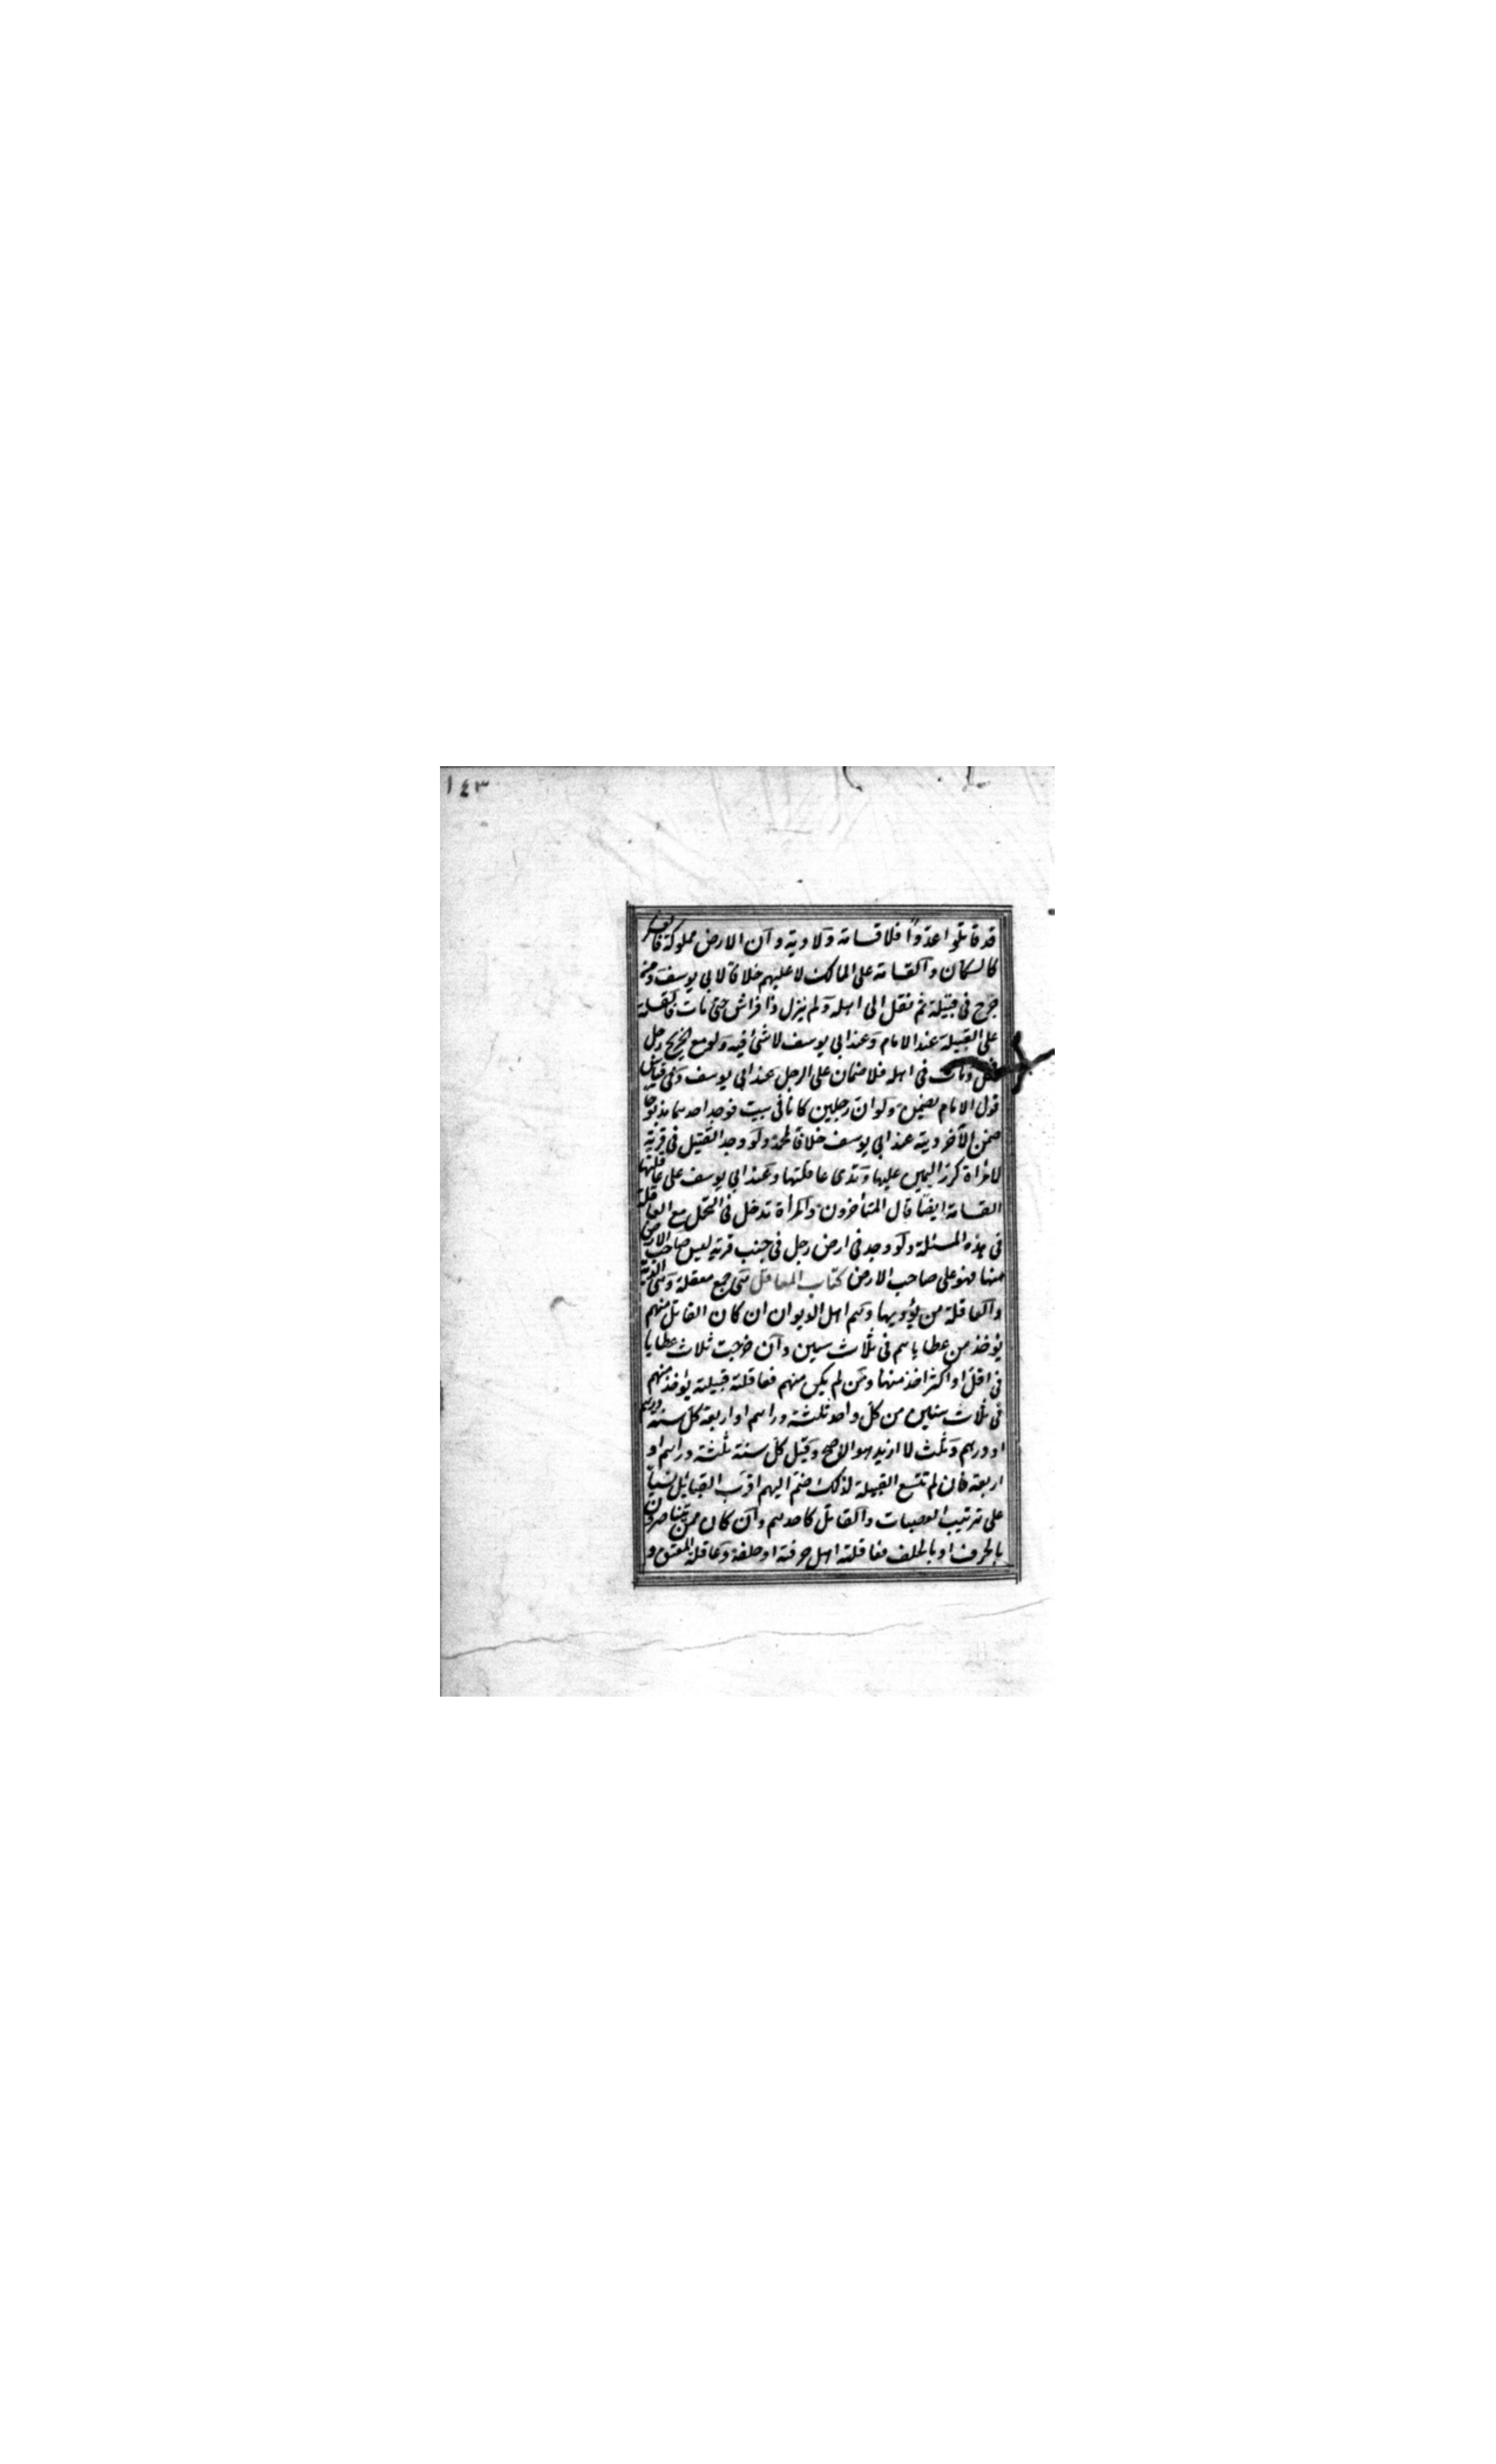 ١٤٣
قد قاتلوا عدوّا فلا قسامة ولا دية وان الارض مملوكة فالعسكر
كالسكان والقسامة على المالك لا عليهم خلافا لابى يوسف ومن
جرح فى قبيلة ثم نقل الى اهله ولم يزل ذا فراش حتى مات فالقسامة
على القبيلة عند الامام وعند ابى يوسف لا شئ فيه ولو مع الجريح رجل
فحمل ومات فى اهله فلا ضمان على الرجل عند ابى يوسف وفى قياس
قول الامام يضمن ولو ان رجلين كانا فى بيت فوجد احدهما مذبوحا
ضمن الآخر ديته عند ابى يوسف خلافا لمحمد ولو وجد القتيل فى قرية
لامرأة كرر اليمين عليها وتدى عاقلتها وعند ابى يوسف على عاقلتها
القسامة ايضا قال المتأخرون والمرأة تدخل فى التحمل مع العاقلة
فى هذه المسئلة ولو وجد فى ارض رجل فى جنب قرية ليس صاحب الارض
منها فهو على صاحب الارض كتاب المعاقل هى جمع معقلة وهى الدية
والعاقلة من يؤديها وهم اهل الديوان ان كان القاتل منهم
يؤخذ من عطاياهم فى ثلاث سنين وان خرجت ثلاث عطايا
فى اقل او اكثر اخذ منها ومن لم يكن منهم فعاقلته قبيلته يؤخذ منهم
فى ثلاث سنين من كل واحد ثلثة دراهم او اربعة كل سنة درهم
او درهم وثلث لا ازيد هو الاصح وقيل كل سنة ثلثة دراهم او
اربعة فان لم تتسع القبيلة لذلك ضم اليهم اقرب القبائل نسبا
على ترتيب العصبات والقاتل كاحدهم وان كان ممن يتناصرون
بالحرف او بالحلف فعاقلته اهل حرفته او حلفه وعاقلة المعتق و